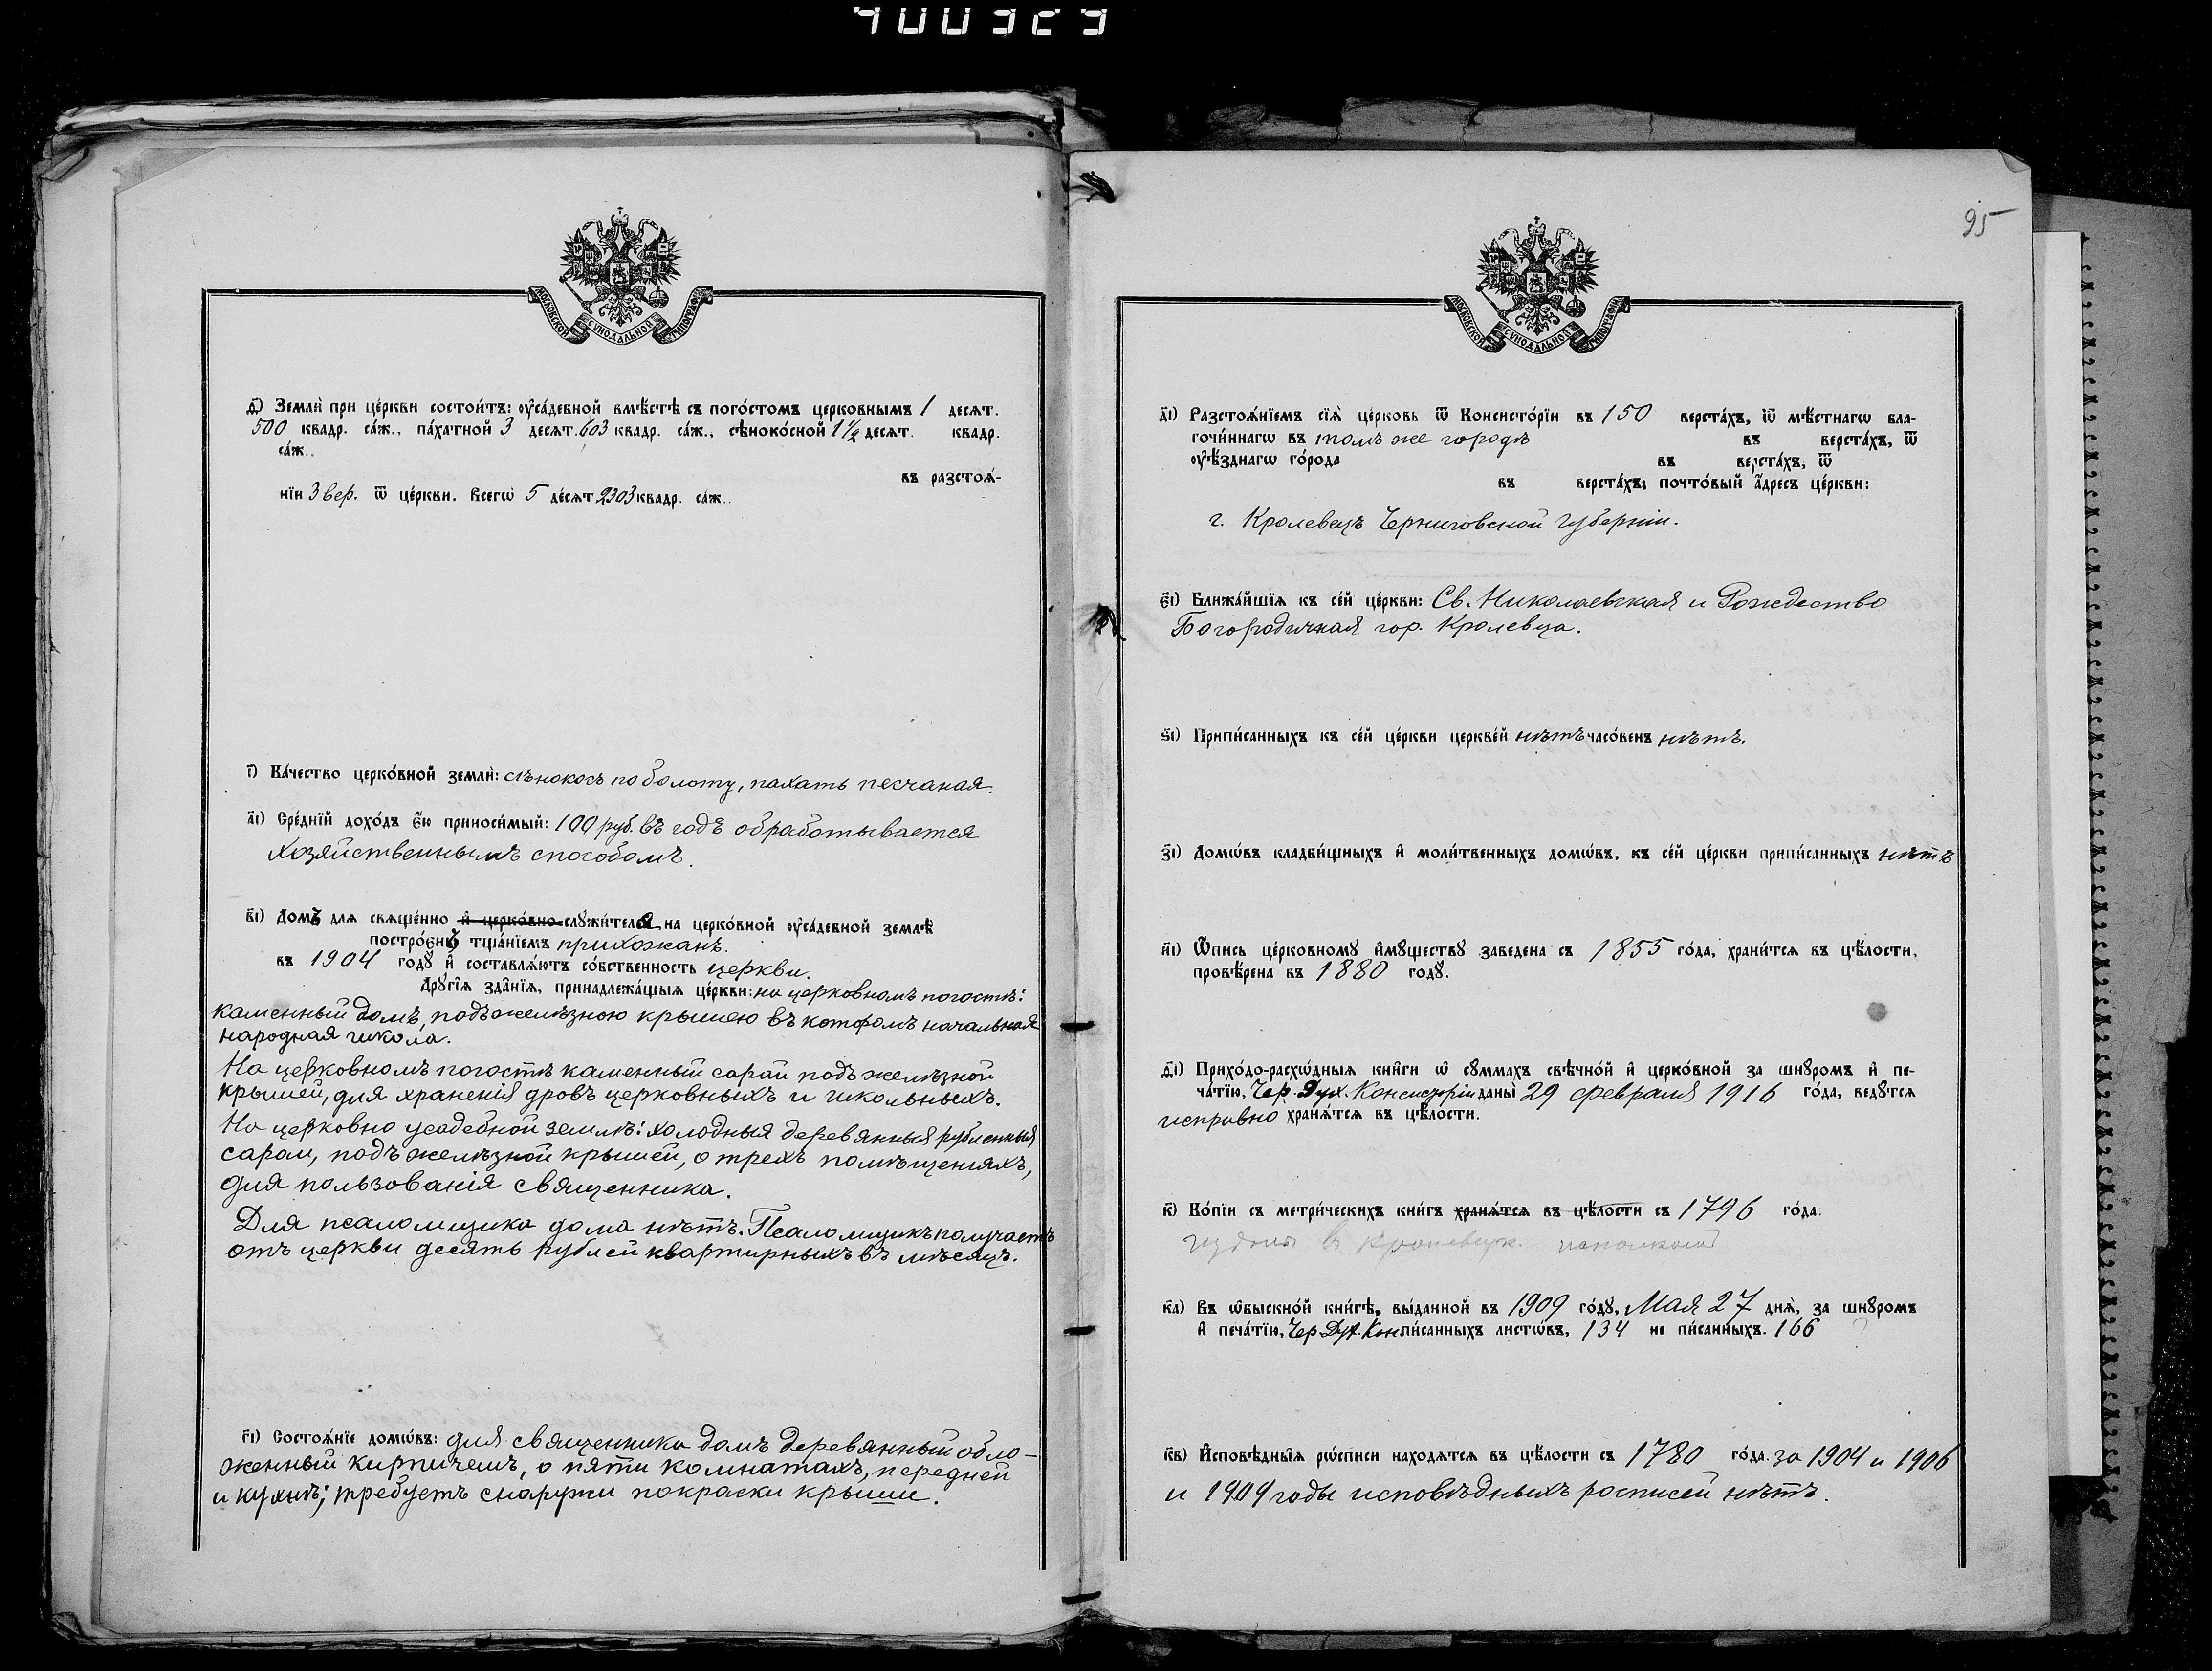 95
МОСКОВСКОЙ СѴНОДАЛЬНОЙ ТИПОГРАФІИ
ѳ҃) Землѝ при це́ркви состои́тъ: ᲂу҆са́дебной вмѣ́стѣ съ пого́стомъ церко́внымъ 1 десѧ́т.
500 квадр. са́ж., па́хатной 3 десѧ́т. 603 квадр. са́ж., сѣноко́сной 1 1/2 десѧ́т. квадр.
са́ж..
въ разстоѧ́-
нїи 3 вер. ѿ це́ркви. Всегѡ̀ 5 де́сѧт 2303 квадр. са́ж..
і҃) Ка́чество церко́вной землѝ: сѣнокосъ по болоту, пахать песчаная.
а҃і) Сре́днїй дохо́дъ є҆́ю приноси́мый: 100 руб. въ годъ обработывается
хозяйственнымъ способомъ.
в҃і) Домъ для свѧще́нно и҆ церко́вно-служи́теля на церко́вной ᲂу҆са́дебной землѣ̀
постро́енъ тща́нїемъ прихожанъ.
въ 1904 годꙋ̀ и҆ составлѧ́ютъ со́бственность церкви.
Дрꙋгі̑ѧ зда̑нїѧ, принадлежа́щыѧ це́ркви: на церковномъ погостѣ:
каменный домъ, подъ желѣзною крышею въ которомъ начальная
народная школа.
На церковномъ погостѣ каменный сарай подъ желѣзной
крышей, для храненія дровъ церковныхъ и школьныхъ.
На церковно усадебной землѣ: холодныя деревянныя рубленныя
сараи, подъ желѣзной крышей, о трехъ помѣщеніяхъ,
для пользованія священника.
Для псаломщика дома нѣтъ. Псаломщикъ получаетъ
отъ церкви десять рублей квартирныхъ въ мѣсяцъ.
г҃і) Состоѧ́нїе домѡ́въ: для священника домъ деревянный обло-
женный кирпичемъ, о пяти комнатахъ, передней
и кухнѣ; требуетъ снаружи покраски крыши.
МОСКОВСКОЙ СѴНОДАЛЬНОЙ ТИПОГРАФІИ
д҃і) Разстоѧ́нїемъ сїѧ̀ це́рковь ѿ Консисто́рїи въ 150 верста́хъ, ѿ мѣ́стнагѡ бла-
гочи́ннагѡ въ томъ же городѣ въ верста́хъ, ѿ
ᲂу҆ѣ́зднагѡ го́рода въ верста́хъ, ѿ
въ верста́хъ; почто́вый а҆́дресъ це́ркви:
г. Кролевецъ Черниговской губерніи.
є҃і) Ближа́йшїѧ къ се́й це́ркви: Св. Николаевская и Рождество
Богородичная гор. Кролевца.
ѕ҃і) Припи́санныхъ къ се́й це́ркви церкве́й нѣтъ часо́венъ нѣтъ.
з҃і) Домѡ́въ кладби́щныхъ и҆ моли́твенныхъ домѡ́въ, къ се́й це́ркви припи́санныхъ нѣтъ
и҃і) Ѻ҆́пись це́рковномꙋ и҆мꙋ́ществꙋ заведена съ 1855 го́да, храни́тсѧ въ цѣ́лости,
провѣ́рена въ 1880 годꙋ̀.
ѳ҃і) Прихо́до-расхѡ́дныѧ кни̑ги ѡ҆ сꙋ́ммахъ свѣчно́й и҆ церко́вной за шнꙋро́мъ и҆ пе-
ча́тїю, Чер. Дух. Консисторіи даны̀ 29 февраля 1916 го́да, ведꙋ́тсѧ
исправно хранѧ́тсѧ въ цѣ́лости.
к҃) Ко́пїи съ метри́ческихъ кни́гъ хранѧ́тсѧ въ цѣ́лости съ 1796 го́да.
к҃а) Въ ѡ҆быскно́й кни́гѣ, вы́данной въ 1909 го́дꙋ, Мая 27 днѧ̀, за шнꙋро́мъ
и҆ печа́тїю, Чер. Дух. Кон пи́санныхъ листѡ́въ, 134 не пи́санныхъ. 166
к҃в) И҆сповѣ̑дныѧ рѡ́списи нахо́дѧтсѧ въ цѣ́лости съ 1780 го́да. за 1904 и 1906
и 1909 годы исповѣдныхъ росписей нѣтъ.